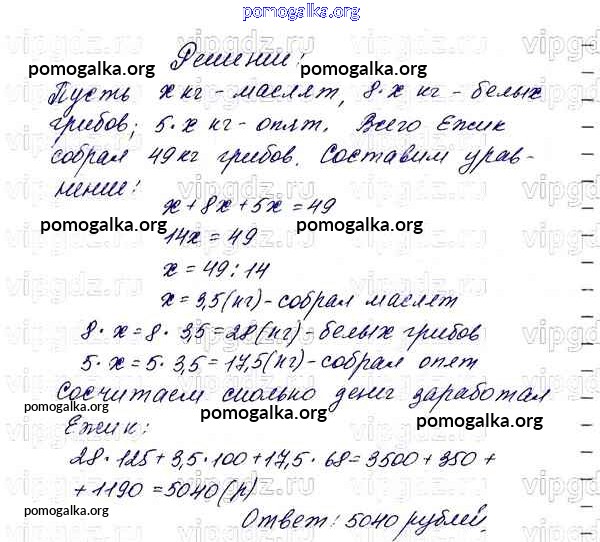 pomogalka.org
Решение:
pomogalka.org pomogalka.org
Пусть x кг - маслят, 8·x кг - белых
грибов; 5·x кг - опят. Всего Ежик
собрал 49 кг грибов. Составим урав-
нение:
x + 8x + 5x = 49
pomogalka.org pomogalka.org
14x = 49
x = 49 : 14
x = 3,5 (кг) - собрал маслят
8·x = 8·3,5 = 28 (кг) - белых грибов
5·x = 5·3,5 = 17,5 (кг) - собрал опят
Сосчитаем сколько денег заработал
pomogalka.org pomogalka.org
Ежик:
28·125 + 3,5·100 + 17,5·68 = 3500 + 350 +
+ 1190 = 5040 (р)
pomogalka.org pomogalka.org
Ответ: 5040 рублей.